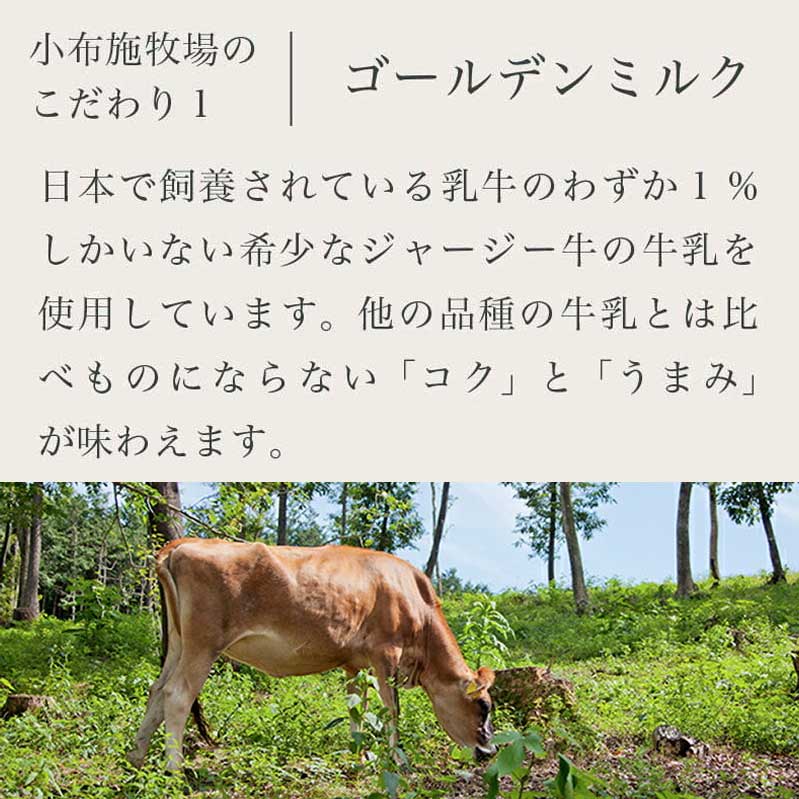 小布施牧場の
こだわり1
ゴールデンミルク
日本で飼養されている乳牛のわずか1%
しかいない希少なジャージー牛の牛乳を
使用しています。他の品種の牛乳とは比
べものにならない「コク」と「うまみ」
が味わえます。